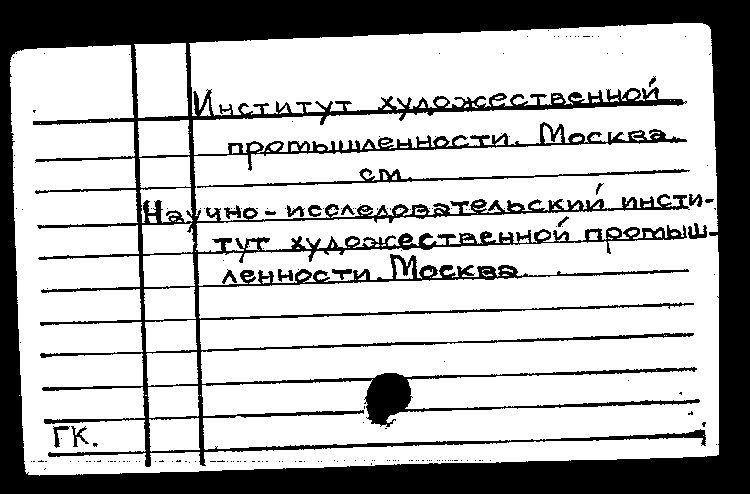 Институт художественной
промышленности. Москва.
см.
Научно-исследовательский инсти-
тут художественной промыш-
ленности. Москва
ГК.